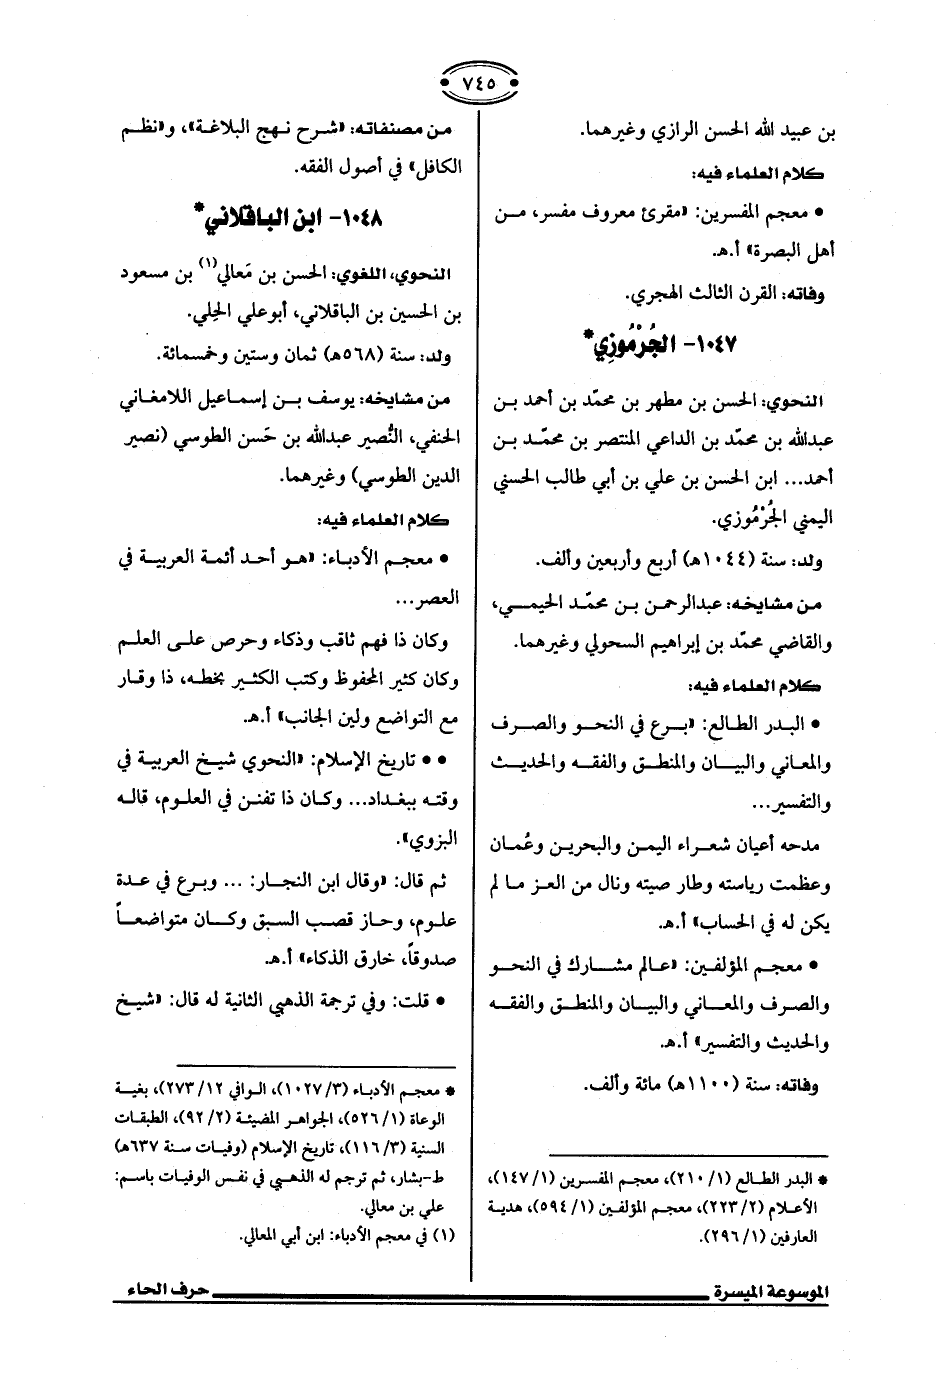 ٧٤٥
بن عبيد الله الحسن الرازي وغيرهما.
كلام العلماء فيه:
• معجم المفسرين: «مقرئ معروف مفسر، من
أهل البصرة» أ.هـ.
وفاته: القرن الثالث الهجري.
١٠٤٧- الجُرْمُوزِي*
النحوي: الحسن بن مطهر بن محمّد بن أحمد بن
عبدالله بن محمّد بن الداعي المنتصر بن محمّد بن
أحمد... ابن الحسن بن علي بن أبي طالب الحسني
اليمني الجُرْمُوزي.
ولد: سنة (١٠٤٤هـ) أربع وأربعين وألف.
من مشايخه: عبدالرحمن بن محمّد الحيمي،
والقاضي محمّد بن إبراهيم السحولي وغيرهما.
كلام العلماء فيه:
• البدر الطالع: «برع في النحو والصرف
والمعاني والبيان والمنطق والفقه والحديث
والتفسير...
مدحه أعيان شعراء اليمن والبحرين وعُمان
وعظمت رياسته وطار صيته ونال من العز ما لم
يكن له في الحساب» أ.هـ.
• معجم المؤلفين: «عالم مشارك في النحو
والصرف والمعاني والبيان والمنطق والفقه
والحديث والتفسير» أ.هـ.
وفاته: سنة (١١٠٠هـ) مائة وألف.
* البدر الطالع (١/ ٢١٠)، معجم المفسرين (١/ ١٤٧)،
الأعلام (٢/ ٢٢٣)، معجم المؤلفين (١/ ٥٩٤)، هدية
العارفين (١/ ٢٩٦).
من مصنفاته: «شرح نهج البلاغة»، و«نظم
الكافل» في أصول الفقه.
١٠٤٨- ابن الباقلاني*
النحوي، اللغوي: الحسن بن مَعالي(١) بن مسعود
بن الحسين بن الباقلاني، أبو علي الحِلي.
ولد: سنة (٥٦٨هـ) ثمان وستين وخمسمائة.
من مشايخه: يوسف بن إسماعيل اللامغاني
الحنفي، النُّصير عبدالله بن حَسن الطوسي (نصير
الدين الطوسي) وغيرهما.
كلام العلماء فيه:
• معجم الأدباء: «هو أحد أئمة العربية في
العصر...
وكان ذا فهم ثاقب وذكاء وحرص على العلم
وكان كثير المحفوظ وكتب الكثير بخطه، ذا وقار
مع التواضع ولين الجانب» أ.هـ.
• • تاريخ الإسلام: «النحوي شيخ العربية في
وقته ببغداد... وكان ذا تفنن في العلوم، قاله
البزوي».
ثم قال: «وقال ابن النجار: ... وبرع في عدة
علوم، وحاز قصب السبق وكان متواضعاً
صدوقاً، خارق الذكاء» أ.هـ.
• قلت: وفي ترجمة الذهبي الثانية له قال: «شيخ
* معجم الأدباء (٣/ ١٠٢٧)، الوافي ١٢/ ٢٧٣)، بغية
الوعاة (١/ ٥٢٦)، الجواهر المضيئة (٢/ ٩٢)، الطبقات
السنية (٣/ ١١٦)، تاريخ الإسلام (وفيات سنة ٦٣٧هـ)
ط-بشار، ثم ترجم له الذهبي في نفس الوفيات باسم:
علي بن معالي.
(١) في معجم الأدباء: ابن أبي المعالي.
الموسوعة الميسرة
حرف الحاء